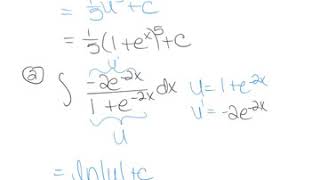 = 1/5 u⁵ + c
= 1/5 (1 + eˣ)⁵ + c
u'
② ∫ -2e⁻²ˣ / 1 + e⁻²ˣ dx u = 1 + e⁻²ˣ
u' = -2e⁻²ˣ
u
= ln|u| + c